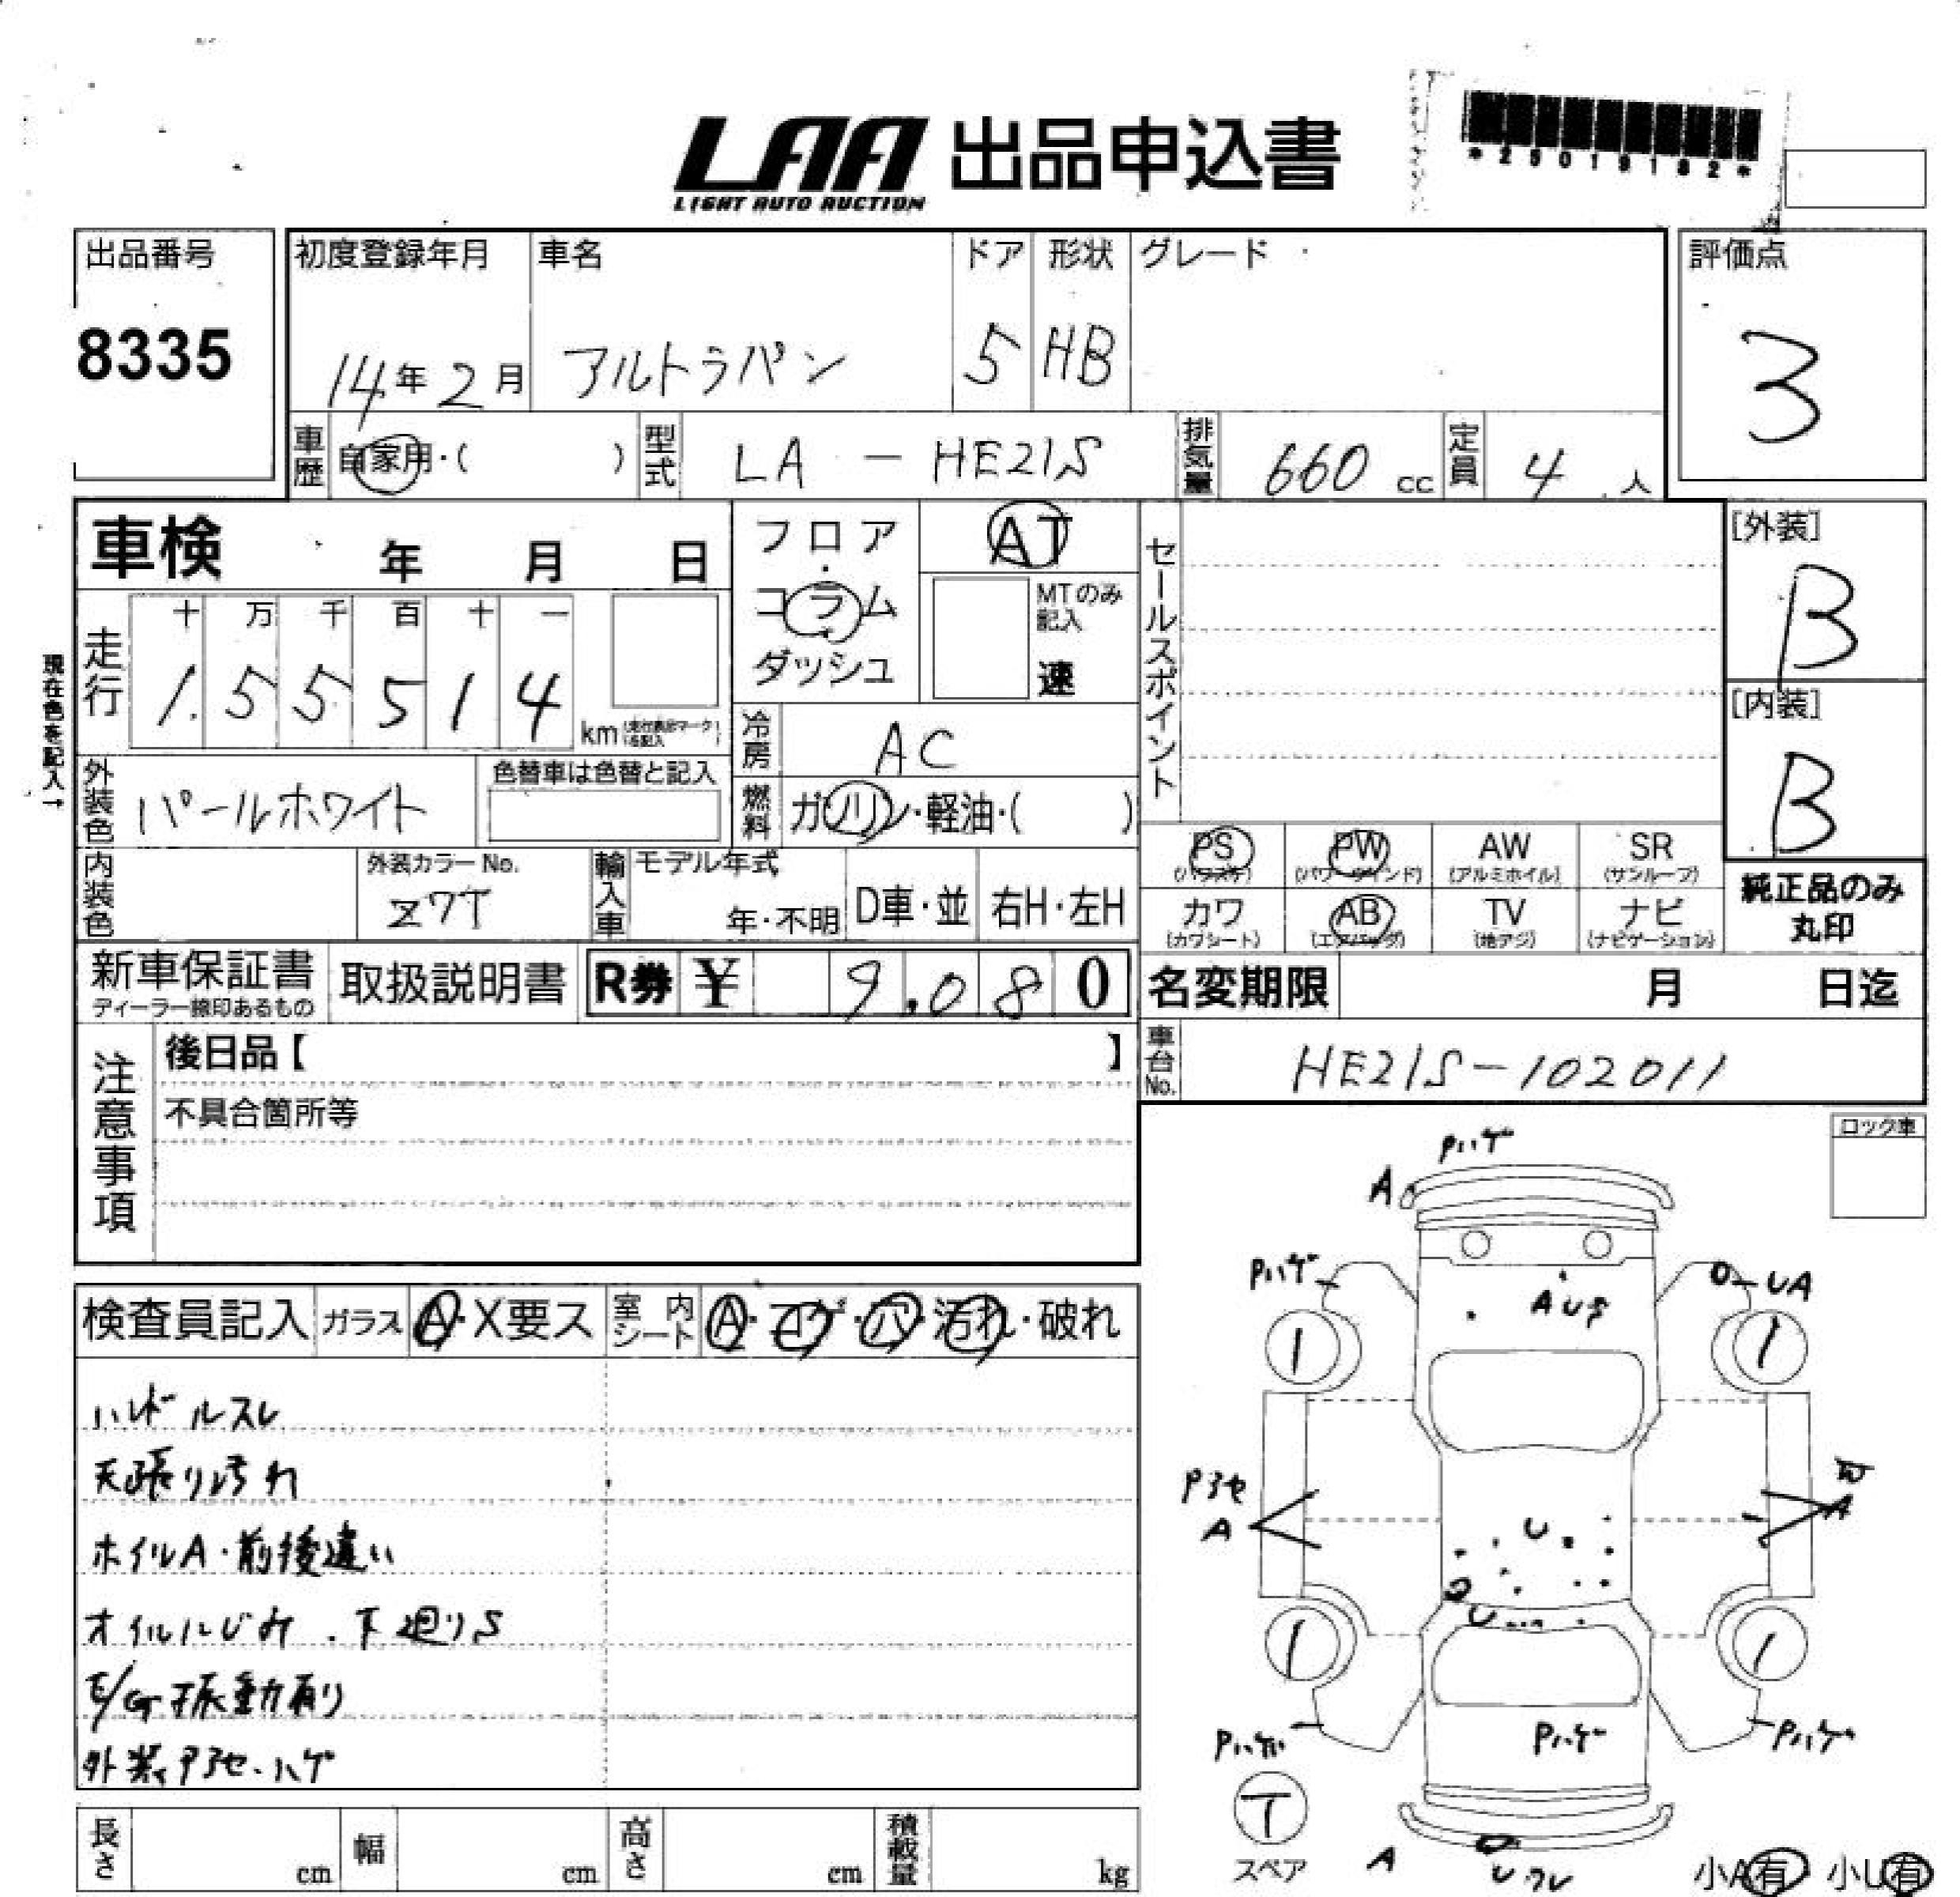 LAA 出品申込書
LIGHT AUTO AUCTION
*25019182*
出品番号
8335
初度登録年月
14年2月
車名
アルトラパン
ドア
5
形状
HB
グレード
評価点
3
車歴
自家用・( )
型式
LA - HE21S
排気量
660 cc
定員
4 人
車検 年 月 日
フロア・コラム
ダッシュ
AT
MTのみ
記入
速
セールスポイント
[外装]
B
[内装]
B
現在色を記入→
走行
十 万 千 百 十 一
1.55514
km
冷房
AC
外装色
パールホワイト
色替車は色替と記入
燃料
ガソリン・軽油・( )
内装色
外装カラーNo.
Z7T
輸入車
モデル年式
年・不明
D車・並
右H・左H
PS
(パワステ)
PW
(パワーウインド)
AW
(アルミホイル)
SR
(サンルーフ)
カワ
(カワシート)
AB
(エアバッグ)
TV
(地デジ)
ナビ
(ナビゲーション)
純正品のみ
丸印
新車保証書
ディーラー捺印あるもの
取扱説明書
R券 ¥ 9,080
名変期限 月 日迄
車台No.
HE21S-102011
注意事項
後日品【 】
不具合箇所等
ロック車
検査員記入
ガラス
A・X要ス
室内シート
A・コゲ・ハ・汚れ・破れ
ハンドルスレ
天張り汚れ
ホイルA・前後違い
オイルにじみ.下廻りS
E/G振動有り
外装アセ.ハゲ
Pハゲ
A
Pハゲ
UA
AUS
1
1
Pアセ
A
W
A
U
U
1
1
Pハゲ
Pハゲ
Pハゲ
T
スペア
A
小A有 小U有
長さ cm
幅 cm
高さ cm
積載量 kg